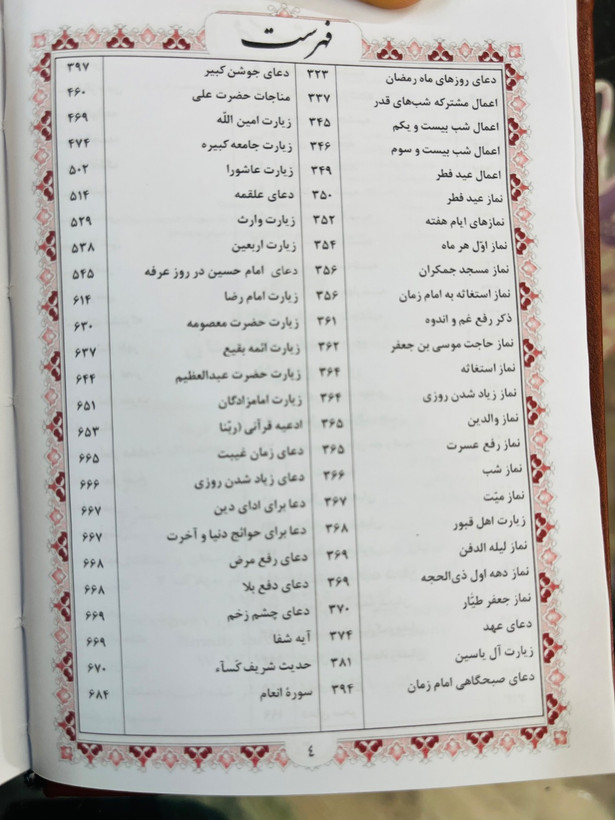 فهرست
دعای روزهای ماه رمضان ۳۲۳
اعمال مشترکه شب‌های قدر ۳۳۷
اعمال شب بیست و یکم ۳۴۵
اعمال شب بیست و سوم ۳۴۶
اعمال عید فطر ۳۴۹
نماز عید فطر ۳۵۰
نمازهای ایام هفته ۳۵۲
نماز اوّل هر ماه ۳۵۴
نماز مسجد جمکران ۳۵۶
نماز استغاثه به امام زمان ۳۵۶
ذکر رفع غم و اندوه ۳۶۱
نماز حاجت موسی بن جعفر ۳۶۲
نماز استغاثه ۳۶۴
نماز زیاد شدن روزی ۳۶۴
نماز والدین ۳۶۵
نماز رفع عسرت ۳۶۵
نماز شب ۳۶۶
نماز میّت ۳۶۷
زیارت اهل قبور ۳۶۸
نماز لیله الدفن ۳۶۹
نماز دهه اول ذی‌الحجه ۳۶۹
نماز جعفر طیّار ۳۷۰
دعای عهد ۳۷۴
زیارت آل یاسین ۳۸۱
دعای صبحگاهی امام زمان ۳۹۴
دعای جوشن کبیر ۳۹۷
مناجات حضرت علی ۴۶۰
زیارت امین اللّه ۴۶۹
زیارت جامعه کبیره ۴۷۴
زیارت عاشورا ۵۰۲
دعای علقمه ۵۱۴
زیارت وارث ۵۲۹
زیارت اربعین ۵۳۸
دعای امام حسین در روز عرفه ۵۴۵
زیارت امام رضا ۶۱۴
زیارت حضرت معصومه ۶۳۰
زیارت ائمه بقیع ۶۳۷
زیارت حضرت عبدالعظیم ۶۴۴
زیارت امامزادگان ۶۵۱
ادعیه قرآنی (ربّنا ۶۵۳
دعای زمان غیبت ۶۶۵
دعای زیاد شدن روزی ۶۶۶
دعا برای ادای دین ۶۶۷
دعا برای حوائج دنیا و آخرت ۶۶۷
دعای رفع مرض ۶۶۸
دعای دفع بلا ۶۶۸
دعای چشم زخم ۶۶۹
آیه شفا ۶۶۹
حدیث شریف کساء ۶۷۰
سورهٔ انعام ۶۸۴
٤